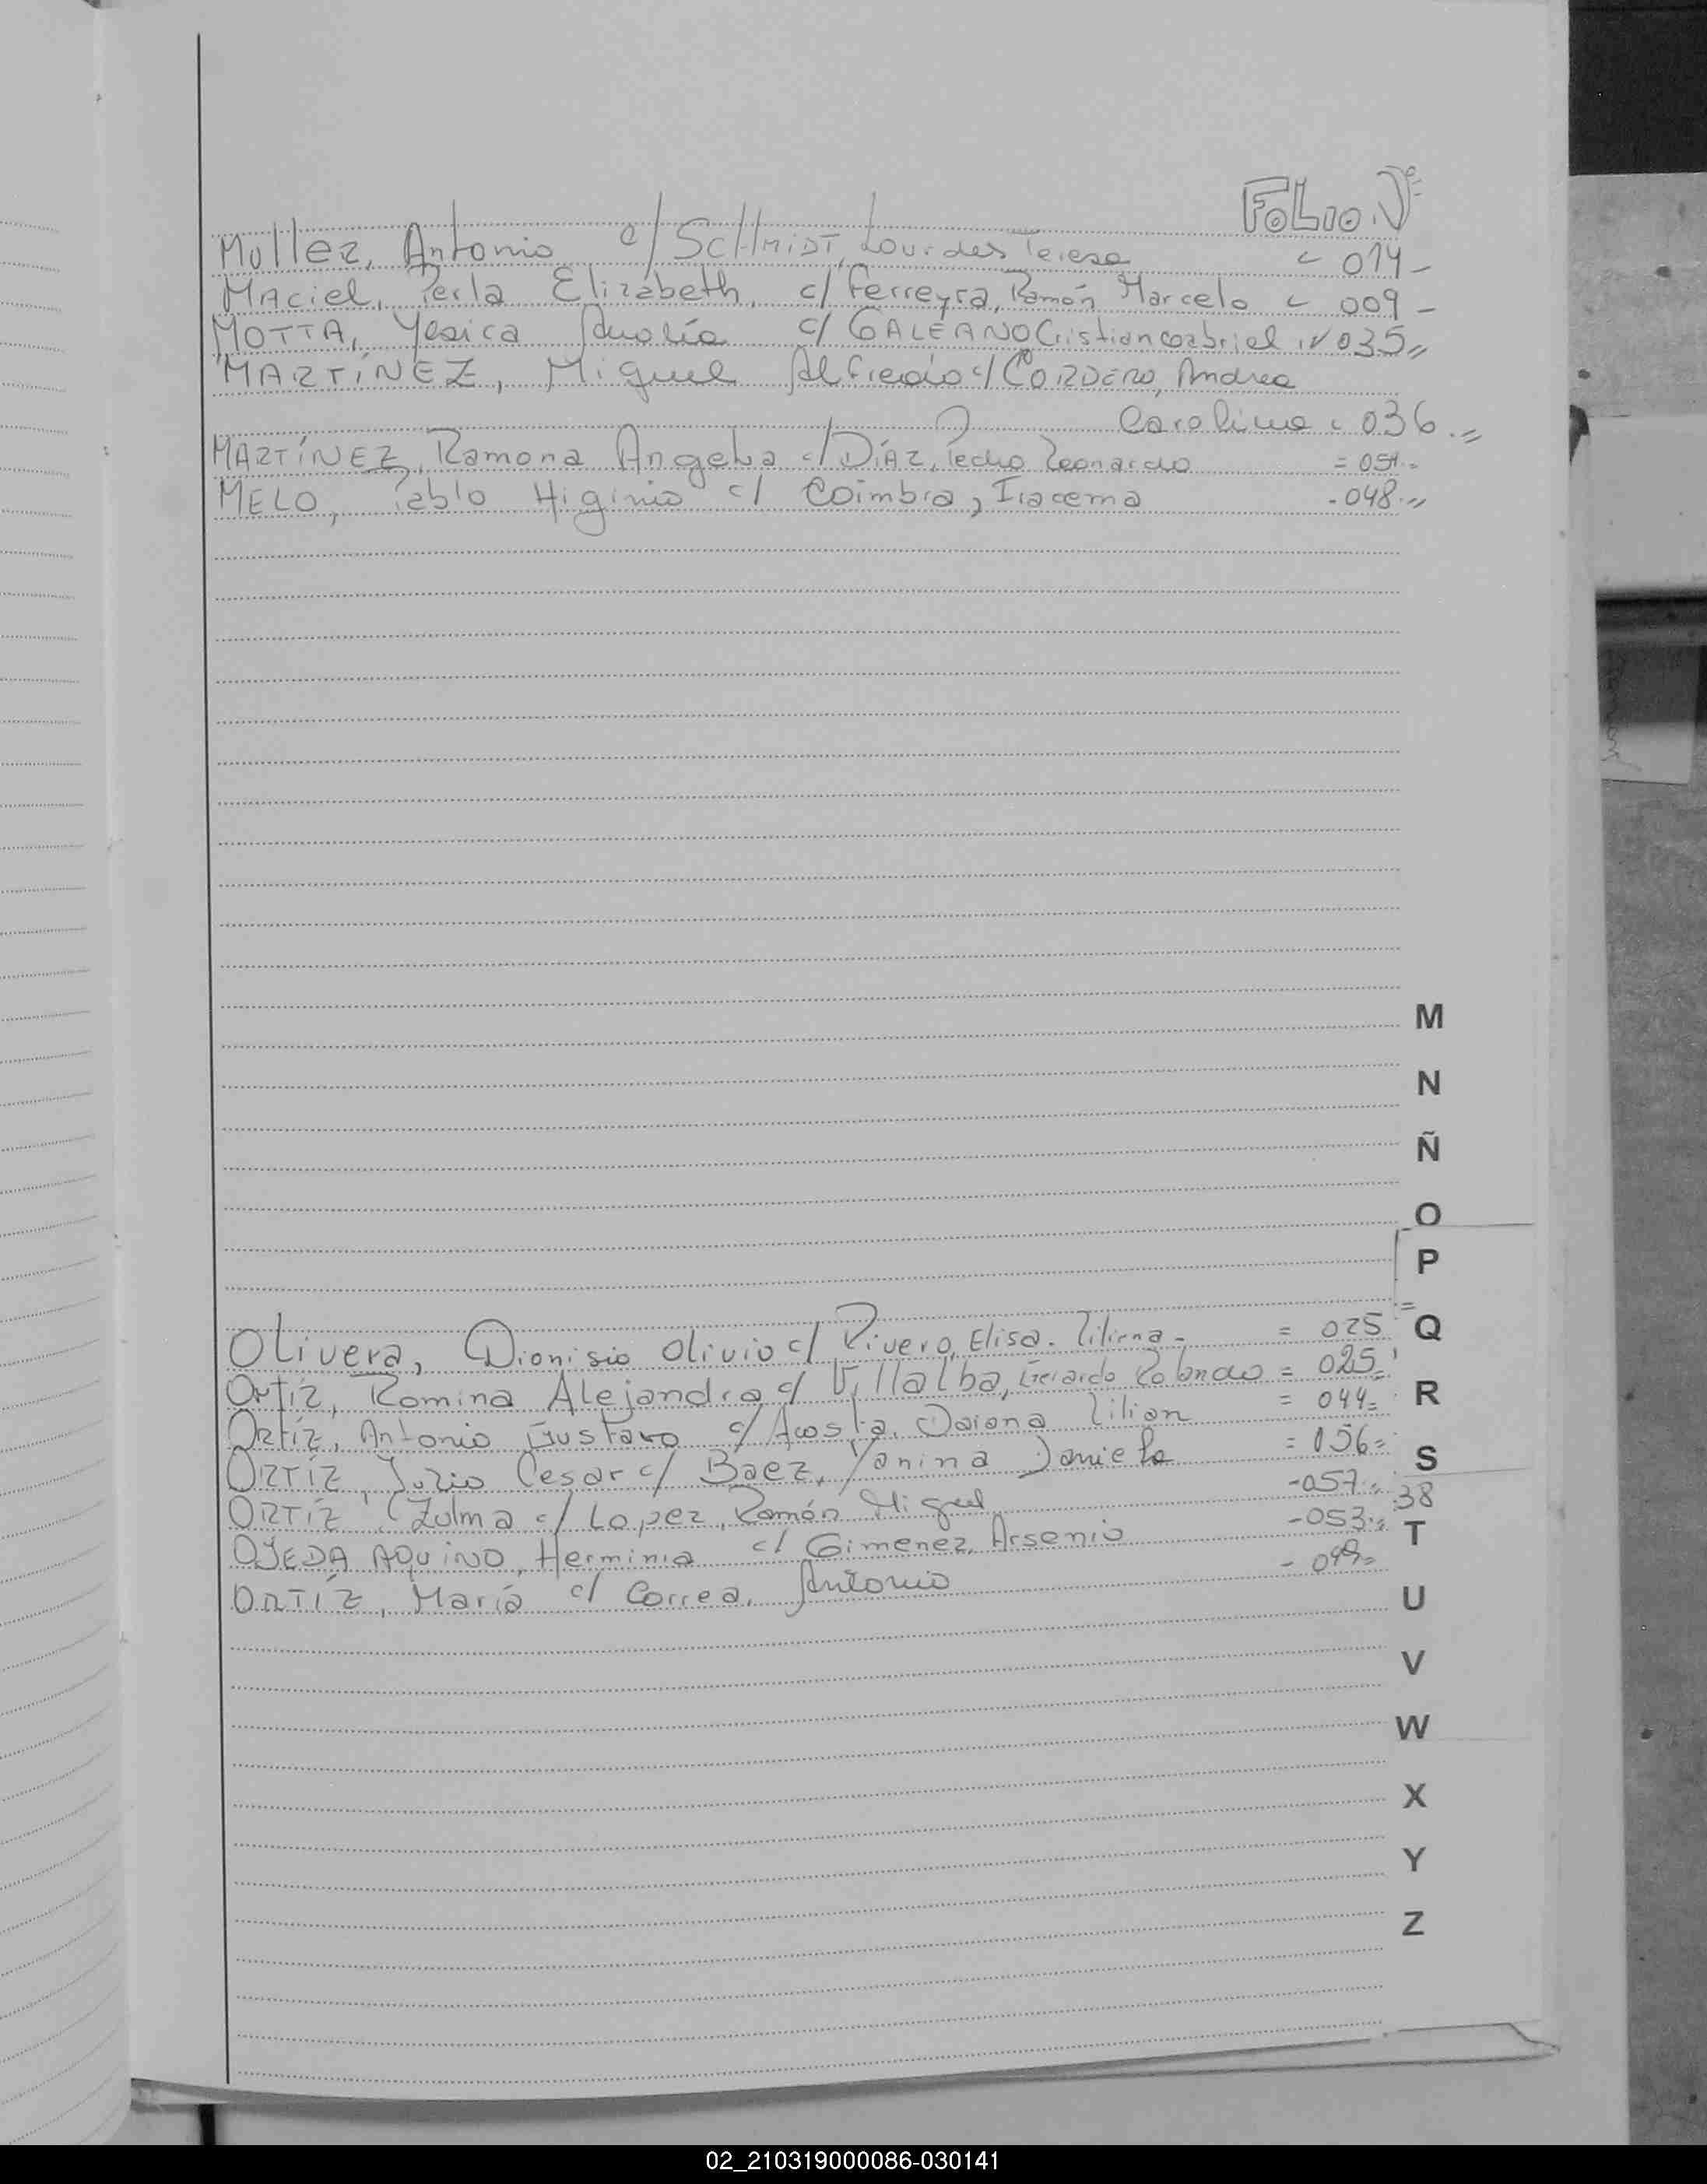 FOLIO Nº
Muller, Antonio c/ SCHMIDT, Lourdes Teresa = 014-
MACiel, Perla Elizabeth, c/ Ferreyra, Ramón Marcelo = 009-
MOTTA, Yesica c/ GALEANO Cristian Gabriel 035"
MARTÍNEZ, Miguel Alfredo c/ CORDERO, Andrea
Carolina = 036.=
MARTÍNEZ, Ramona Angela c/ DíAZ, Pedro Leonardo =
MELO, Pablo Higinio c/ Coimbra, Iracema -048.="
M
N
Ñ
O
P
Olivera, Dionisio Olivio c/ Rivero, Elisa. Liliana- = 025
Q
Ortíz, Romina Alejandra c/ Villalba, Gerardo Rolando = 025=
Ortíz, Antonio Gustavo c/ Acosta, Daiana Lilian = 044=
R
ORTÍZ, Julio Cesar c/ Baez, Yanina Daniela = 056=
S
ORTÍZ, Zulma c/ Lopez, Ramón Miguel -057.=
38
OJEDA AQUINO, Herminia c/ Gimenez, Arsenio -053.=
T
ORTÍZ, María c/ Correa, Antonio - 049=
U
V
W
X
Y
Z
02_210319000086-030141